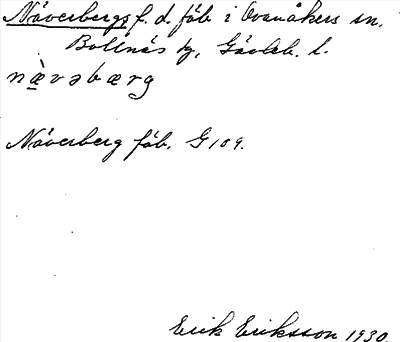 Näverbergs f. d. fäb. i Ovanåkers sn.
Bollnäs tg, Gävleb. l.
næ̀vəbærg
Näverberg fäb. G 109.
Erik Eriksson 1930.